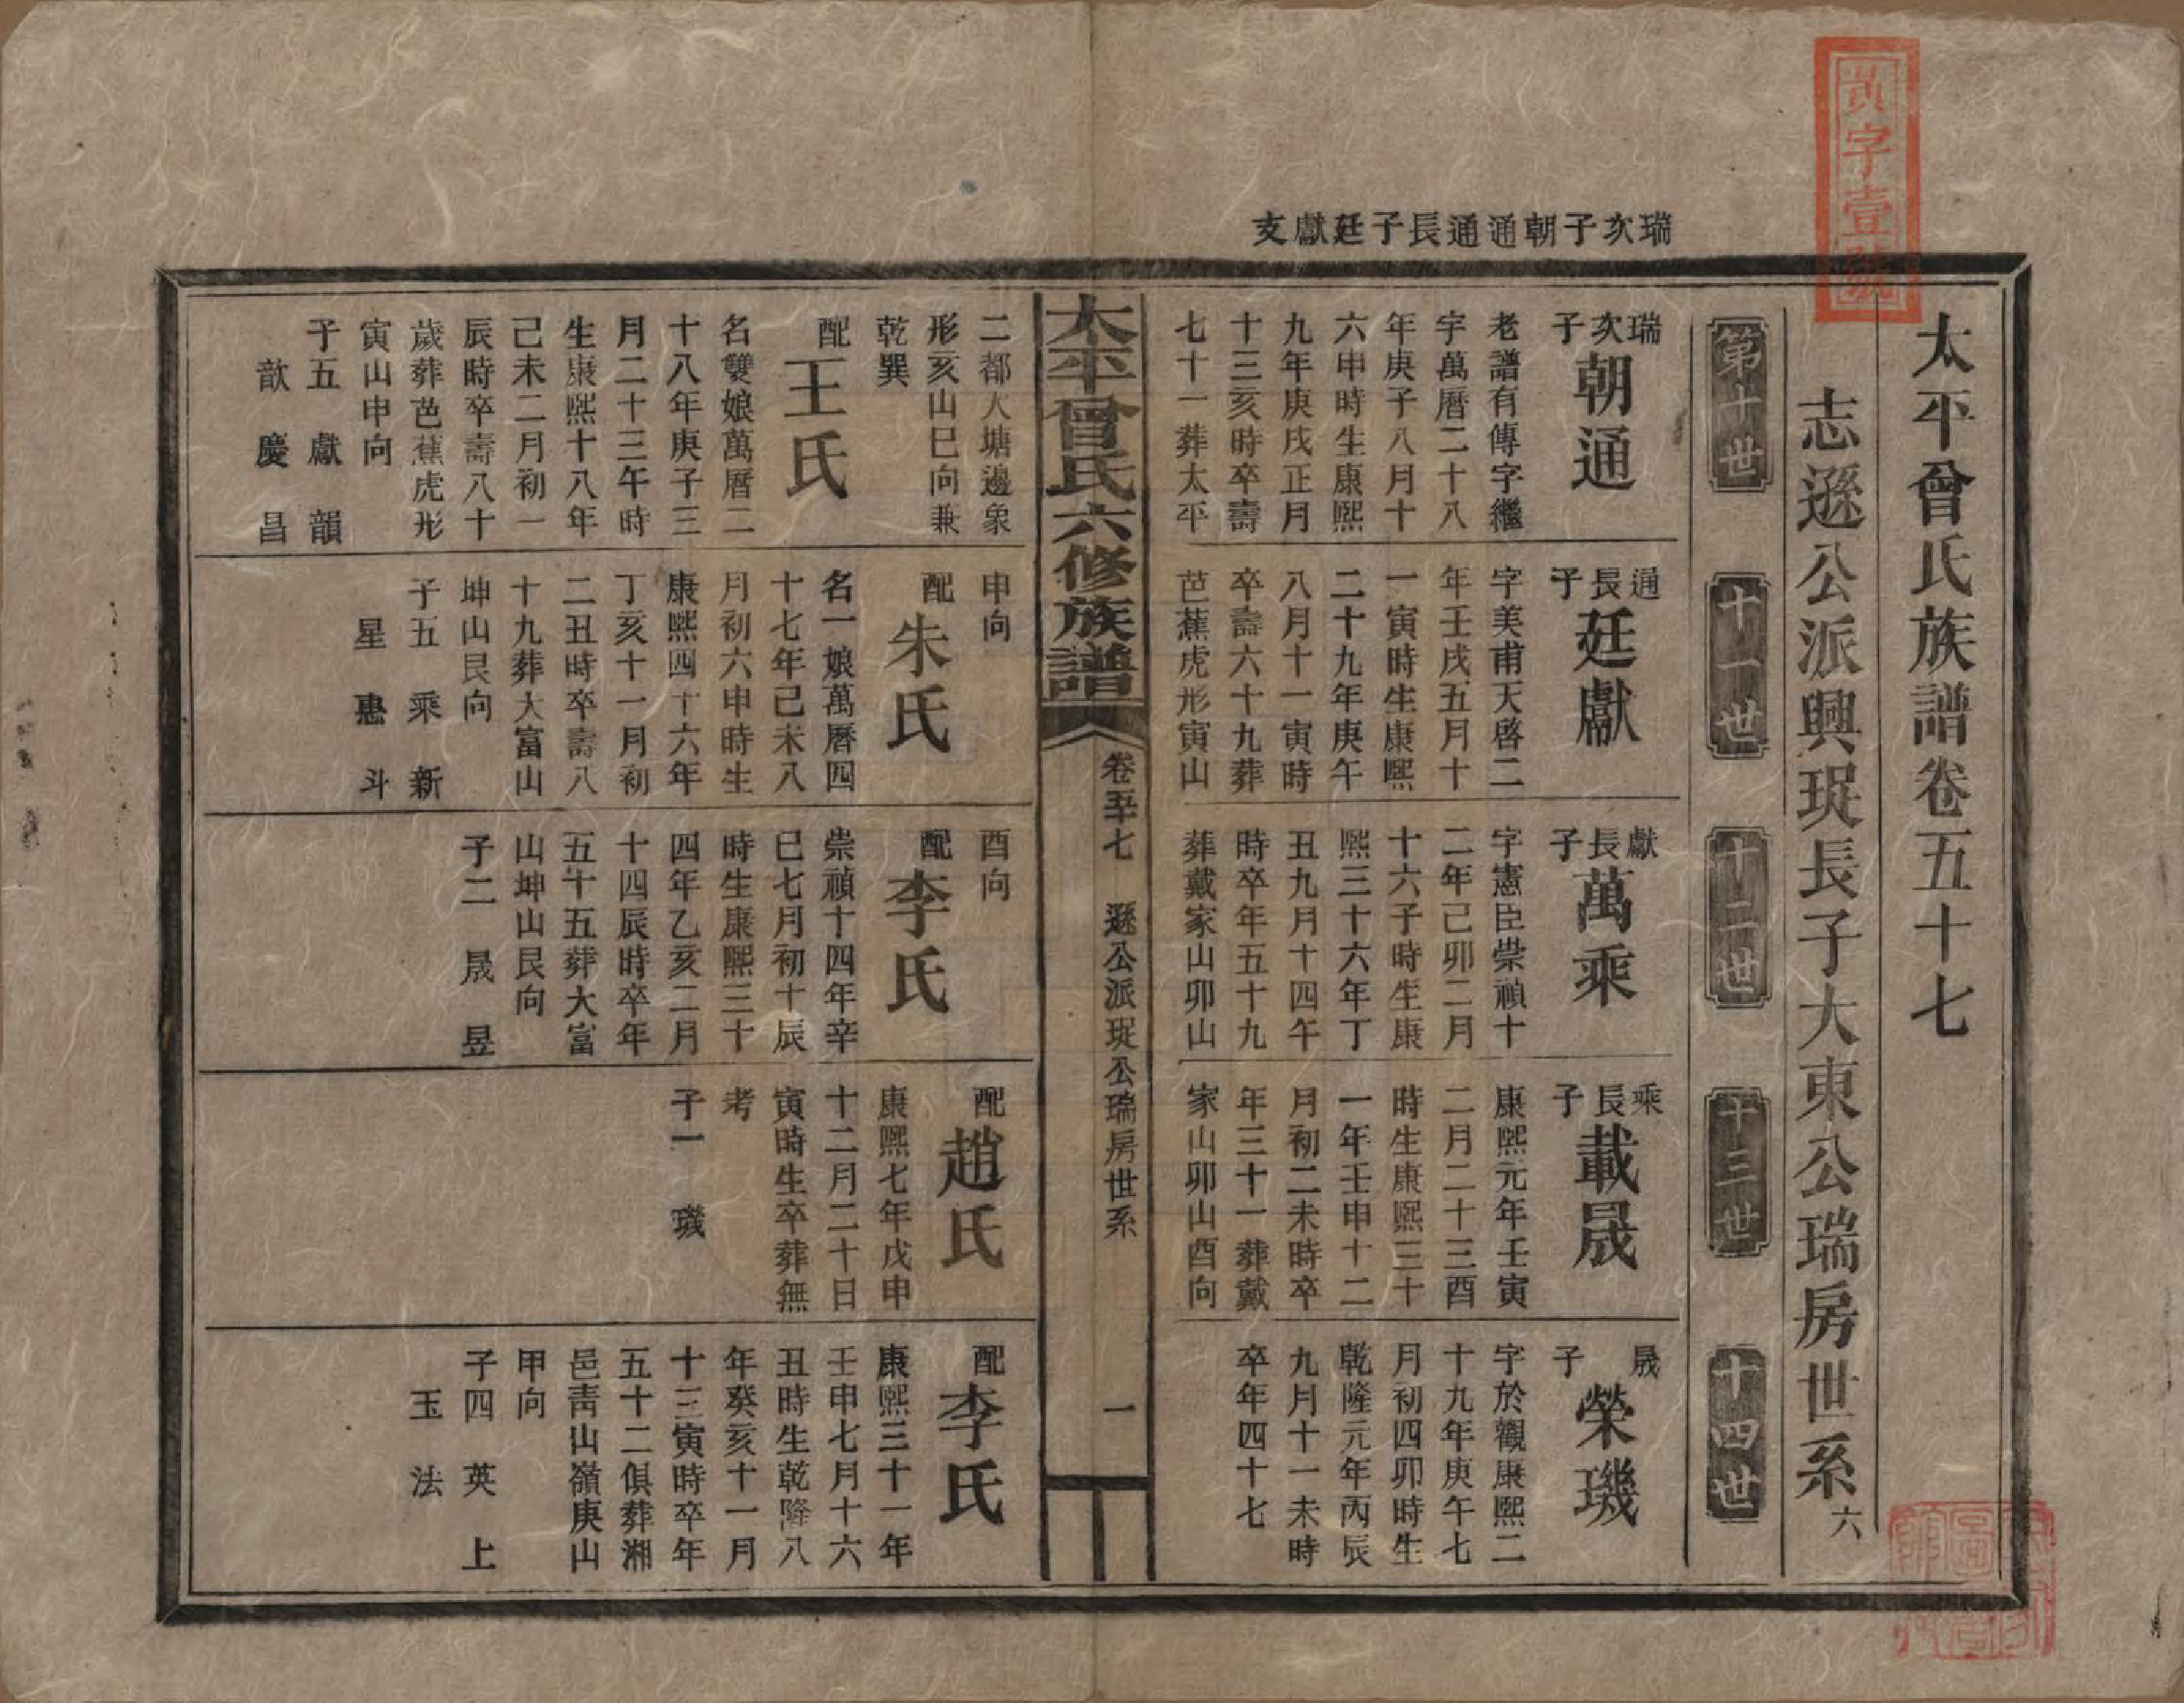 黃字壹號
瑞次子朝通通長子廷獻支
太平曾氏族譜卷五十七
志遜公派興珽長子大東公瑞房世系 六
第十世
十一世
十二世
十三世
十四世
瑞次子
朝通
老譜有傳字繼
字萬曆二十八
年庚子八月十
六申時生康熙
九年庚戌正月
十三亥時卒壽
七十一葬太平
二都大塘邊象
形亥山巳向兼
乾巽
配
王氏
名雙娘萬曆二
十八年庚子三
月二十三午時
生康熙十八年
己未二月初一
辰時卒壽八十
歲葬芭蕉虎形
寅山申向
子五 獻 韻
歆 慶 昌
通長子
廷獻
字美甫天啓二
年壬戌五月十
一寅時生康熙
二十九年庚午
八月十一寅時
卒壽六十九葬
芭蕉虎形寅山
申向
配
朱氏
名一娘萬曆四
十七年己未八
月初六申時生
康熙四十六年
丁亥十一月初
二丑時卒壽八
十九葬大富山
坤山艮向
子五 乘 新
星 惠 斗
獻長子
萬乘
字憲臣崇禎十
二年己卯二月
十六子時生康
熙三十六年丁
丑九月十四午
時卒年五十九
葬戴家山卯山
酉向
配
李氏
崇禎十四年辛
巳七月初十辰
時生康熙三十
四年乙亥二月
十四辰時卒年
五十五葬大富
山坤山艮向
子二 晟 昱
乘長子
載晟
康熙元年壬寅
二月二十三酉
時生康熙三十
一年壬申十二
月初二未時卒
年三十一葬戴
家山卯山酉向
配
趙氏
康熙七年戊申
十二月二十日
寅時生卒葬無
考
子一 璣
晟子
榮璣
字於觀康熙二
十九年庚午七
月初四卯時生
乾隆元年丙辰
九月十一未時
卒年四十七
配
李氏
康熙三十一年
壬申七月十六
丑時生乾隆八
年癸亥十一月
十三寅時卒年
五十二俱葬湘
邑靑山嶺庚山
甲向
子四 英 上
玉 法
太平曾氏六修族譜
卷五十七 遜公派珽公瑞房世系 一